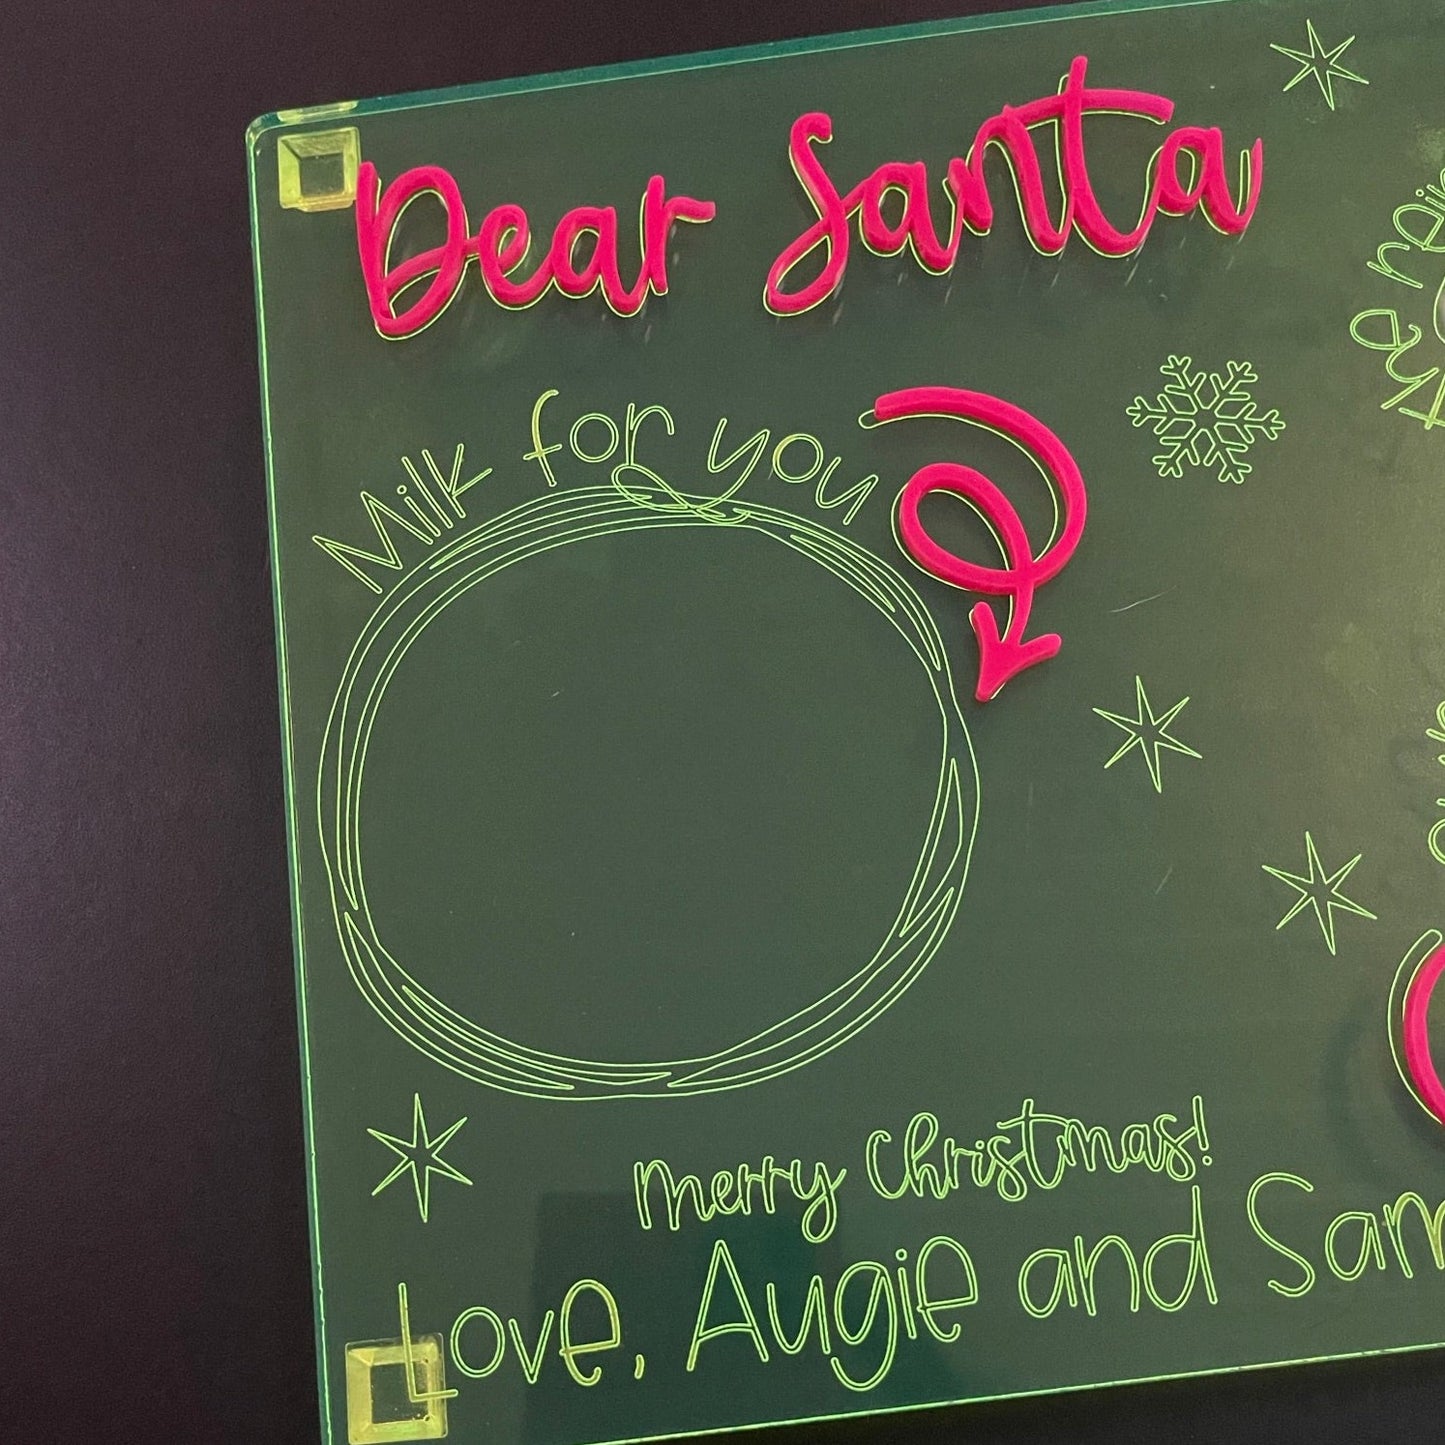 Dear Santa
Milk for you
the rein
Merry Christmas!
Love, Augie and Sam